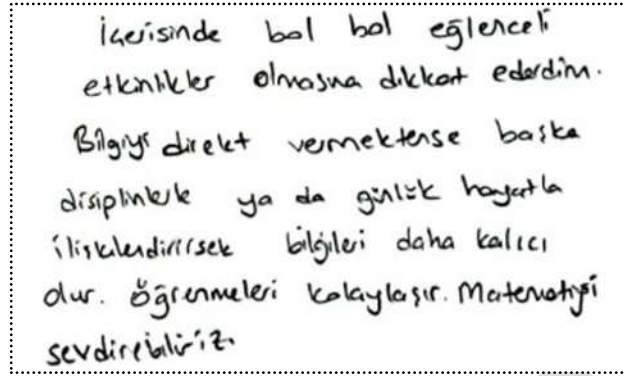 İçerisinde bol bol eğlenceli
etkinlikler olmasına dikkat ederdim.
Bilgiyi direkt vermektense başka
disiplinlerle ya da günlük hayatla
ilişkilendirirsek bilgileri daha kalıcı
olur. Öğrenmeleri kolaylaşır. Matematiği
sevdirebiliriz.